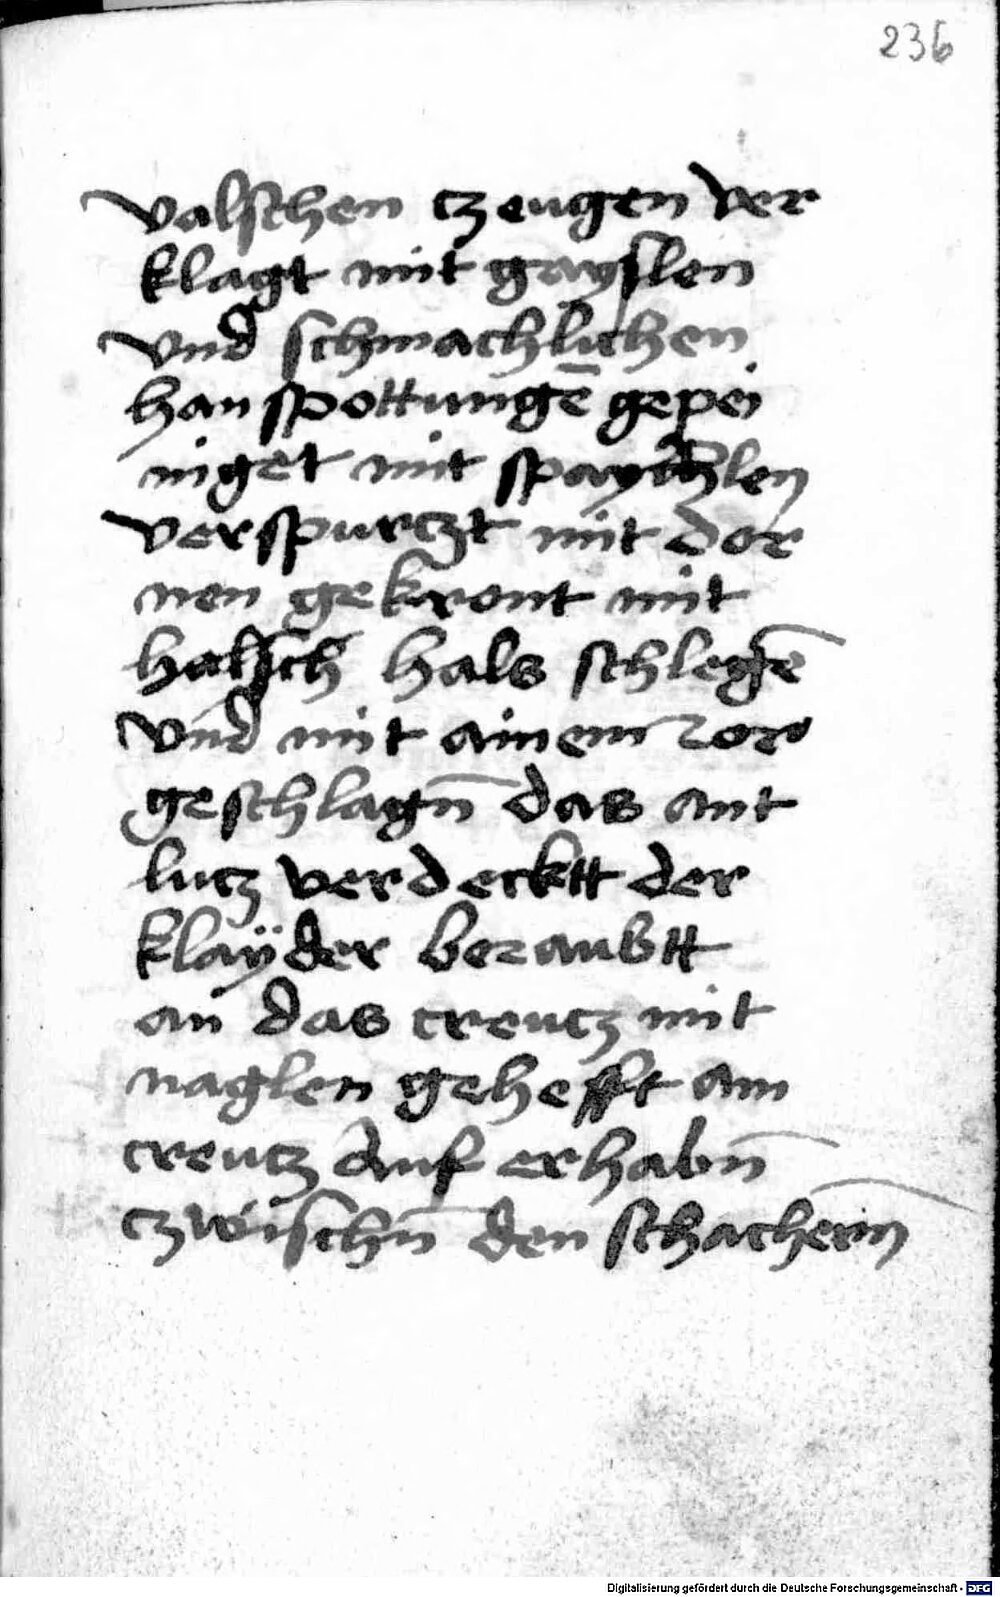 236
valschen czeugen ver
klagt mit gayslen
vnd schmachlichen
han spottungē gepei
niget mit spaychlen
verspurczt mit dor
nen gekront mit
halsch hals schlegē
vnd mit ainem ror
geschlagn̄ das ant
lucz verdecktt der
klaÿder beraubtt
an das creucz mit
naglen gehefft am
creucz auf erhabn̄
czwischn̄ den schachern̄
Digitalisierung gefördert durch die Deutsche Forschungsgemeinschaft - DFG